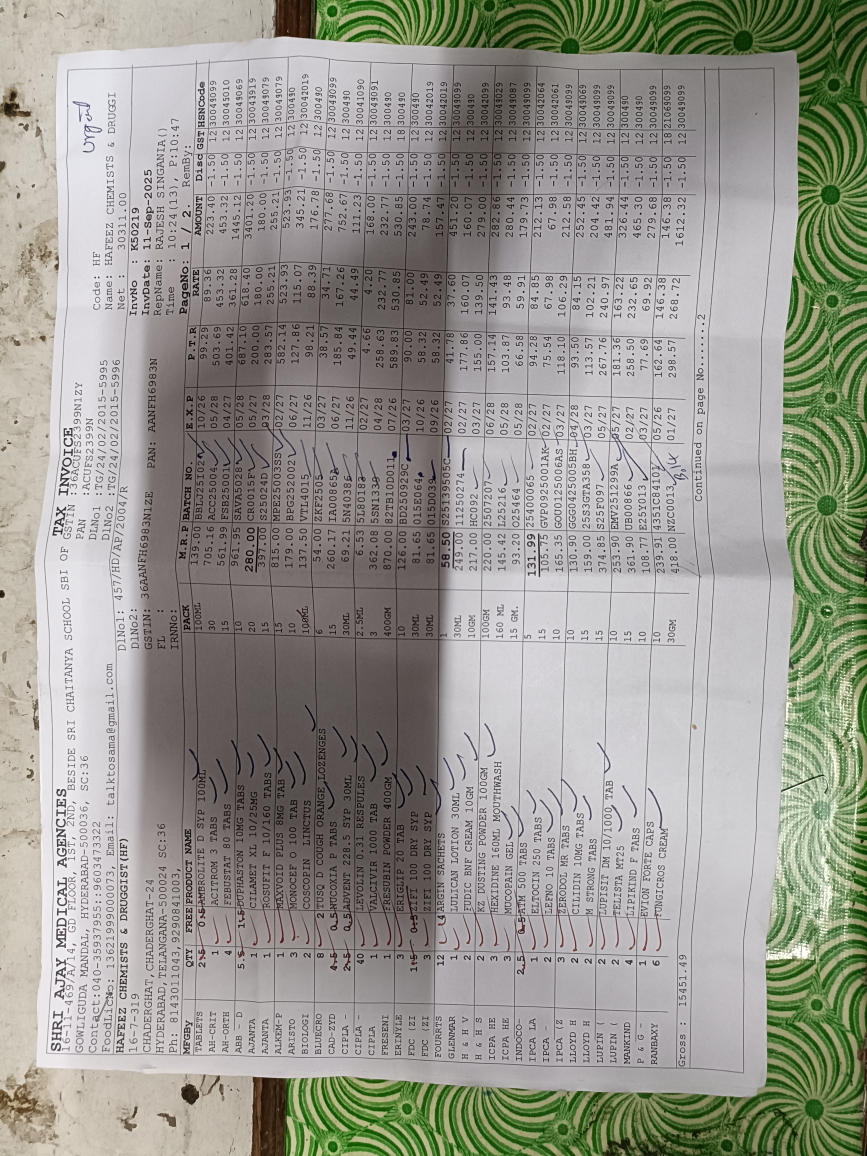 Urgent
TAX INVOICE
SHRI AJAY MEDICAL AGENCIES
16-11-469/A/14, GD FLOOR, 1ST, 2ND, BESIDE SRI CHAITANYA SCHOOL SBI OF
GOWLIGUDA MANDAL, HYDERABAD-500036, SC:36
Contact:040-35937955::9603473322
FoodLicNo: 13621999000073, Email: talktosama@gmail.com
GSTIN :36ACUFS2399N1ZY
PAN :ACUFS2399N
DlNo1 :TG/24/02/2015-5995
DlNo2 :TG/24/02/2015-5996
Code: HF
Name: HAFEEZ CHEMISTS & DRUGGI
Net : 30311.00
HAFEEZ CHEMISTS & DRUGGIST(HF)
16-7-319
CHADERGHAT, CHADERGHAT-24
HYDERABAD, TELANGANA-500024 SC:36
Ph: 8143011043, 9290841003,
DlNo1: 457/HD/AP/2004/R
DlNo2:
GSTIN: 36AANFH6983N1ZE PAN: AANFH6983N
FL :
IRNNo:
InvNo : K50219
InvDate: 11-Sep-2025
RepName: RAJESH SINGANIA()
Time : 10:24(13), F:10:47
PageNo: 1 / 2. RemBy:
MFGBy QTY FREE PRODUCT NAME PACK M.R.P BATCH NO. E.X.P P.T.R RATE AMOUNT Disc GST HSNCode
TABLETS 2.5 0.5 AMBROLITE D SYP 100ML 100ML 139.00 BBLJ25I02 10/26 99.29 89.36 223.40 -1.50 12 30049099
AH-CRIT 1 ACITROM 3 TABS 30 705.16 ACC25004 05/28 503.69 453.32 453.32 -1.50 12 30045010
AH-ORTH 4 FEBUSTAT 80 TABS 15 561.99 FSB25001 04/27 401.42 361.28 1445.12 -1.50 12 30049069
ABB - D 5.5 1.5 DUPHASTON 10MG TABS 10 961.95 05/28 687.10 618.40 3401.20 -1.50 12 30043919
AJANTA 1 CILAMET XL 10/25MG 20 280.00 03/27 200.00 180.00 180.00 -1.50 12 30049079
AJANTA 1 ROSUTOR F 10/160 TABS 15 397.00 S25024D 03/28 283.57 255.21 255.21 -1.50 12 30049079
ALKEM-P 1 MAXVOID PLUS 8MG TAB 15 815.00 MPE25003SS 02/27 582.14 523.93 523.93 -1.50 12 300490
ARISTO 3 MONOCEF O 100 TAB 10 179.00 BPG252002 06/27 127.86 115.07 345.21 -1.50 12 30042019
BIOLOGI 2 COSCOPIN LINCTUS 100ML 137.50 VTL4015 11/26 98.21 88.39 176.78 -1.50 12 300490
BLUECRO 8 2 TUSQ D COUGH ORANGE LOZENGES 6 54.00 ZKF2505 03/27 38.57 34.71 277.68 -1.50 12 30049099
CAD-ZYD 4.5 0.5 MUCOXIA P TABS 15 260.17 IA00865A 06/27 185.84 167.26 752.67 -1.50 12 300490
CIPLA - 2.5 0.5 ADVENT 228.5 SYP 30ML 30ML 69.21 5N40386 11/26 49.44 44.49 111.23 -1.50 12 30041090
CIPLA - 40 LEVOLIN 0.31 RESPULES 2.5ML 6.53 5L80183 02/27 4.66 4.20 168.00 -1.50 12 30049091
CIPLA 1 VALCIVIR 1000 TAB 3 362.08 5SN1339 04/28 258.63 232.77 232.77 -1.50 12 300490
FRESENI 1 FRESUBIN POWDER 400GM 400GM 870.00 82TB10D011 07/26 589.83 530.85 530.85 -1.50 18 300490
ERINYLE 3 ERIGLIP 20 TAB 10 126.00 BD250929C 03/27 90.00 81.00 243.00 -1.50 12 300490
FDC (ZI 1.5 0.5 ZIFI 100 DRY SYP 30ML 81.65 015E064 10/26 58.32 52.49 78.74 -1.50 12 30042019
FDC (ZI 3 ZIFI 100 DRY SYP 30ML 81.65 015D039 09/26 58.32 52.49 157.47 -1.50 12 30042019
FOURRTS 12 4 ARGIN SACHETS 1 58.50 S25139505C 02/27 41.78 37.60 451.20 -1.50 12 30049099
GLENMAR 1 LULICAN LOTION 30ML 30ML 249.00 11250274 02/27 177.86 160.07 160.07 -1.50 12 300490
H & H V 2 FUDIC BNF CREAM 10GM 10GM 217.00 HC092 03/27 155.00 139.50 279.00 -1.50 12 30042099
H & H S 2 KZ DUSTING POWDER 100GM 100GM 220.00 2507207 06/28 157.14 141.43 282.86 -1.50 12 30049029
ICPA HE 3 HEXIDINE 160ML MOUTHWASH 160 ML 145.42 L25216 05/28 103.87 93.48 280.44 -1.50 12 30049087
ICPA HE 3 MUCOPAIN GEL 15 GM. 93.20 O25464 05/28 66.58 59.91 179.73 -1.50 12 30049099
INDOCO- 2.5 0.5 ATM 500 TABS 5 131.99 25400065 02/27 94.28 84.85 212.13 -1.50 12 30042064
IPCA LA 1 ELTOCIN 250 TABS 15 105.75 GVP0925001AK 02/27 75.54 67.98 67.98 -1.50 12 30042061
IPCA - 2 LEFNO 10 TABS 10 165.35 GOU012506AS 03/27 118.10 106.29 212.58 -1.50 12 30049099
IPCA (Z 3 ZERODOL MR TABS 10 130.90 GGG0425005BH 04/28 93.50 84.15 252.45 -1.50 12 30049069
LLOYD H 2 CILIDIN 10MG TABS 15 159.00 25S3GTA358 03/27 113.57 102.21 204.42 -1.50 12 30049099
LLOYD H 2 M STRONG TABS 15 374.85 S25F097 05/27 267.76 240.97 481.94 -1.50 12 30049099
LUPIN ( 2 LUPISIT DM 10/1000 TAB 10 253.90 EMV251299A 05/27 181.36 163.22 326.44 -1.50 12 300490
LUPIN ( 2 TELISTA MT25 15 361.90 UB00866 02/27 258.50 232.65 465.30 -1.50 12 300490
MANKIND 4 LIPIKIND F TABS 10 108.77 E25Y013 03/27 77.69 69.92 279.68 -1.50 12 30049099
P & G - 1 EVION FORTE CAPS 10 239.91 4351C84101 05/26 162.64 146.38 146.38 -1.50 18 21069099
RANBAXY 6 FUNGICROS CREAM 30GM 418.00 NZC0013 01/27 298.57 268.72 1612.32 -1.50 12 30049099
Gross : 15451.49
Continued on page No........2